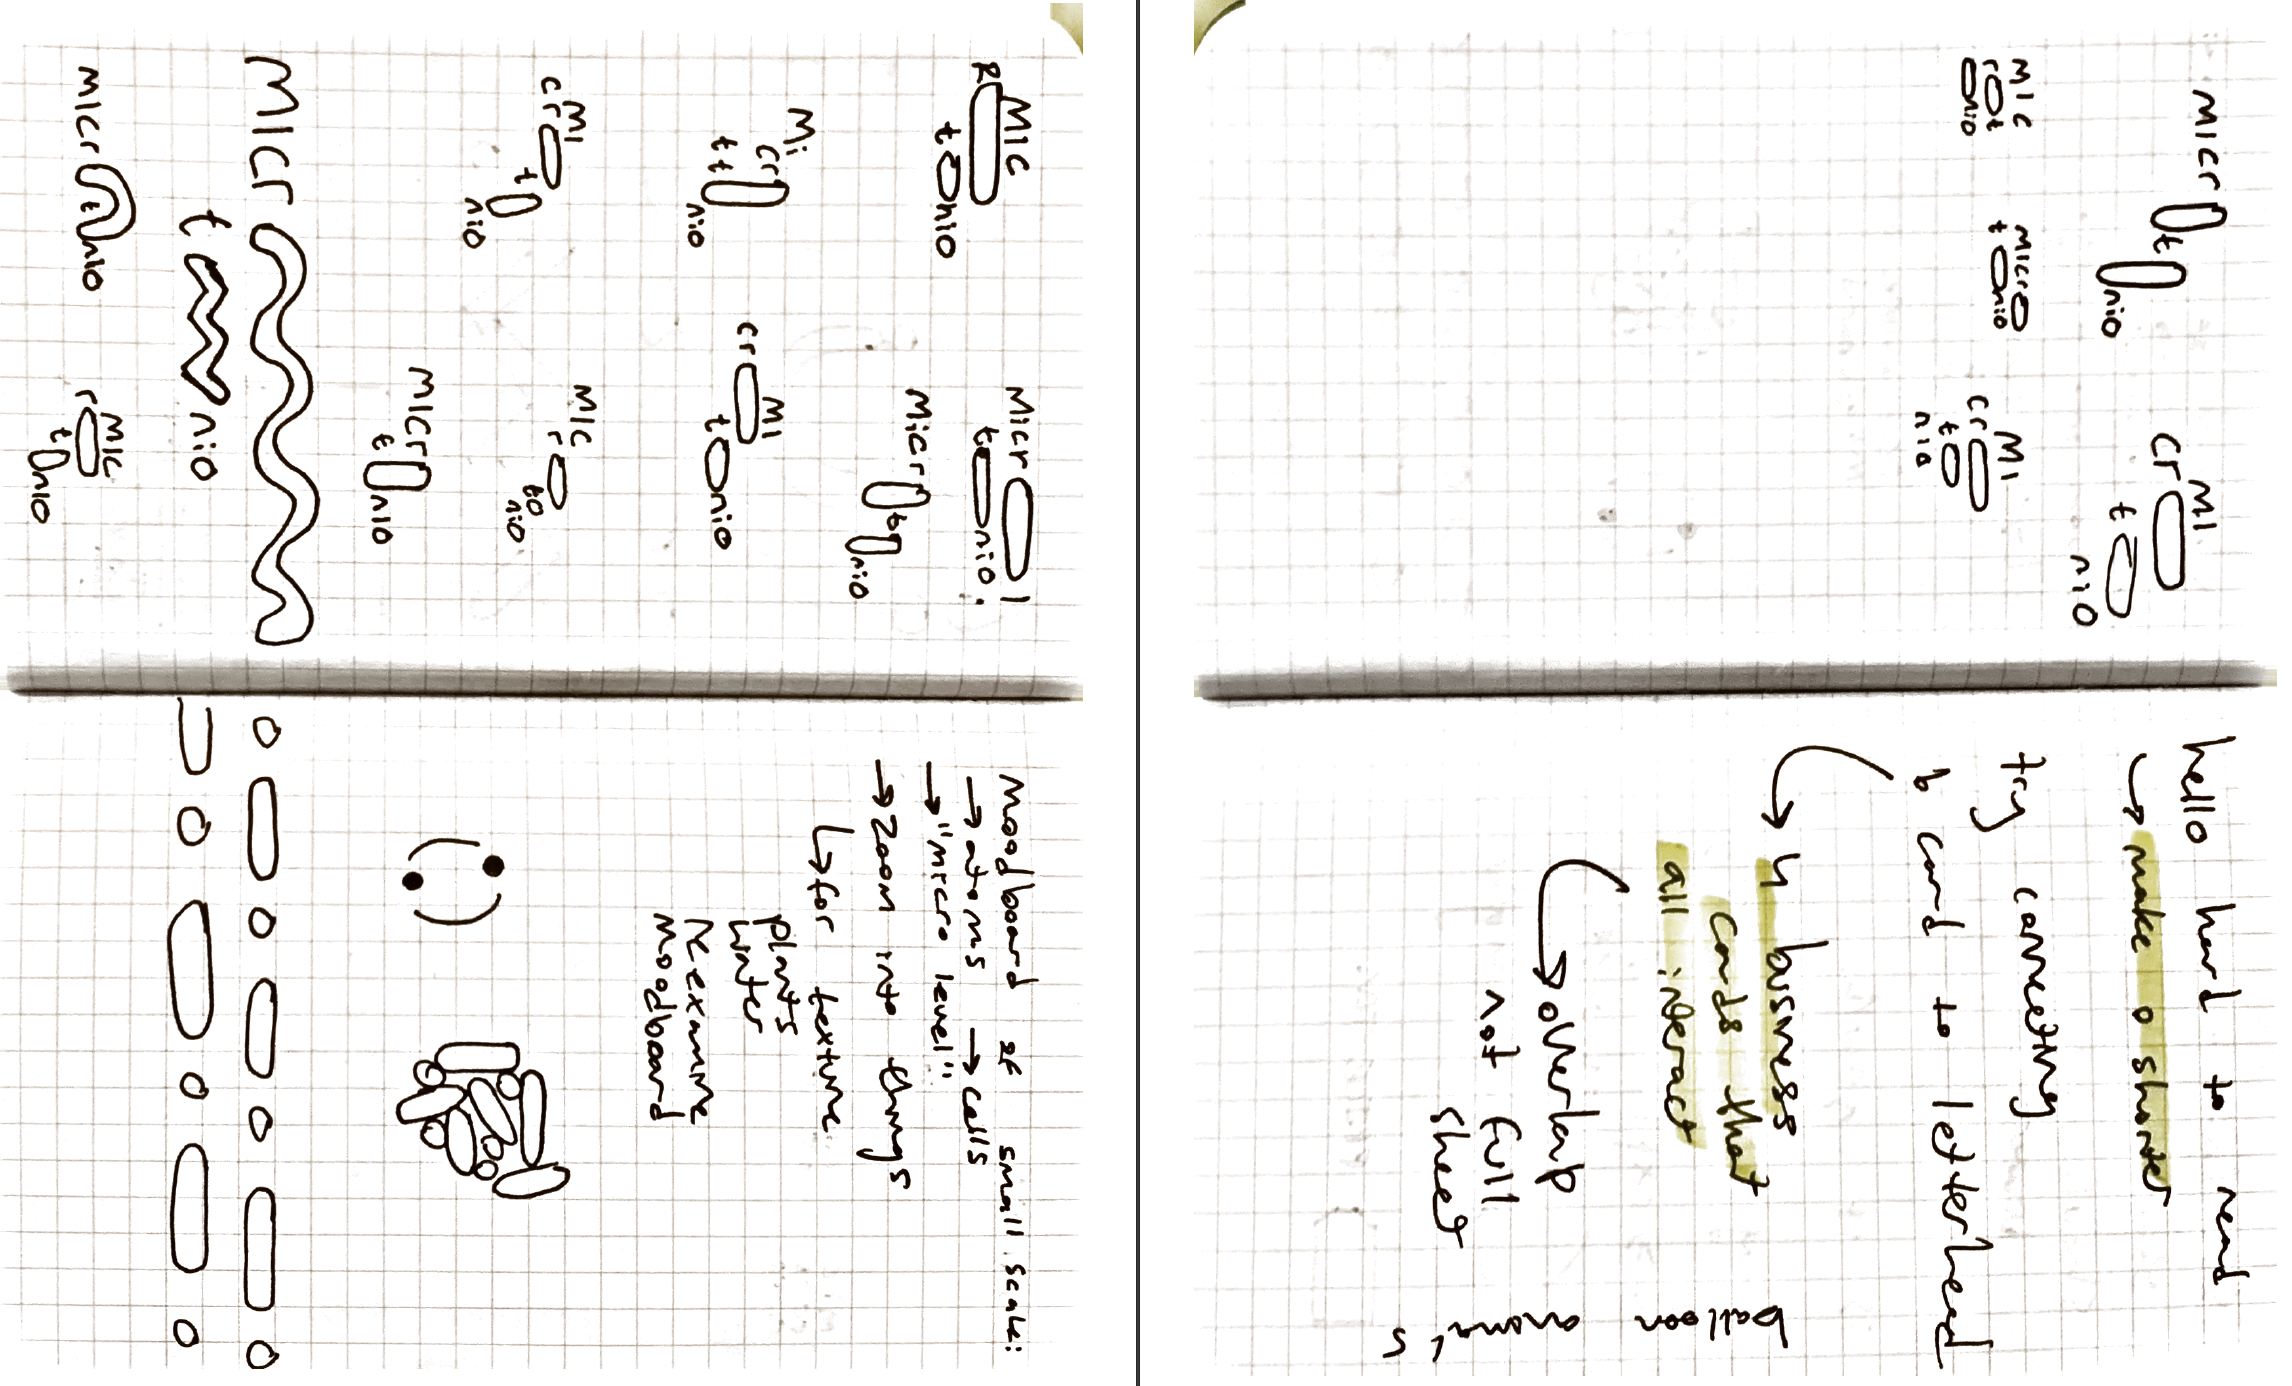 MIC
RO
tOnio
MicrO!
tOnio.
Mi
cr
ttO
nio
MI
crO
tOnio
MicrO
tO
nio
MI
crO
tO
nio
MIC
rO
to
nio
MICrO
tOnio
MICrO
tOnio
MICrO
tOnio
MIC
rO
tOnio
Moodboard of small scale:
→ atoms → cells
→ "micro level"
→ zoom into things
↳ for texture
plants
water
re examine
moodboard
MICrO
tOnio
MI
crO
tO
nio
MIC
rOt
Onio
MICrO
tOnio
MI
crO
tO
nio
hello hard to read
→ make o shorter
try connecting
b card to letterhead
→ 4 business
cards that
all interact
→ overlap
not full
sheet
balloon animals